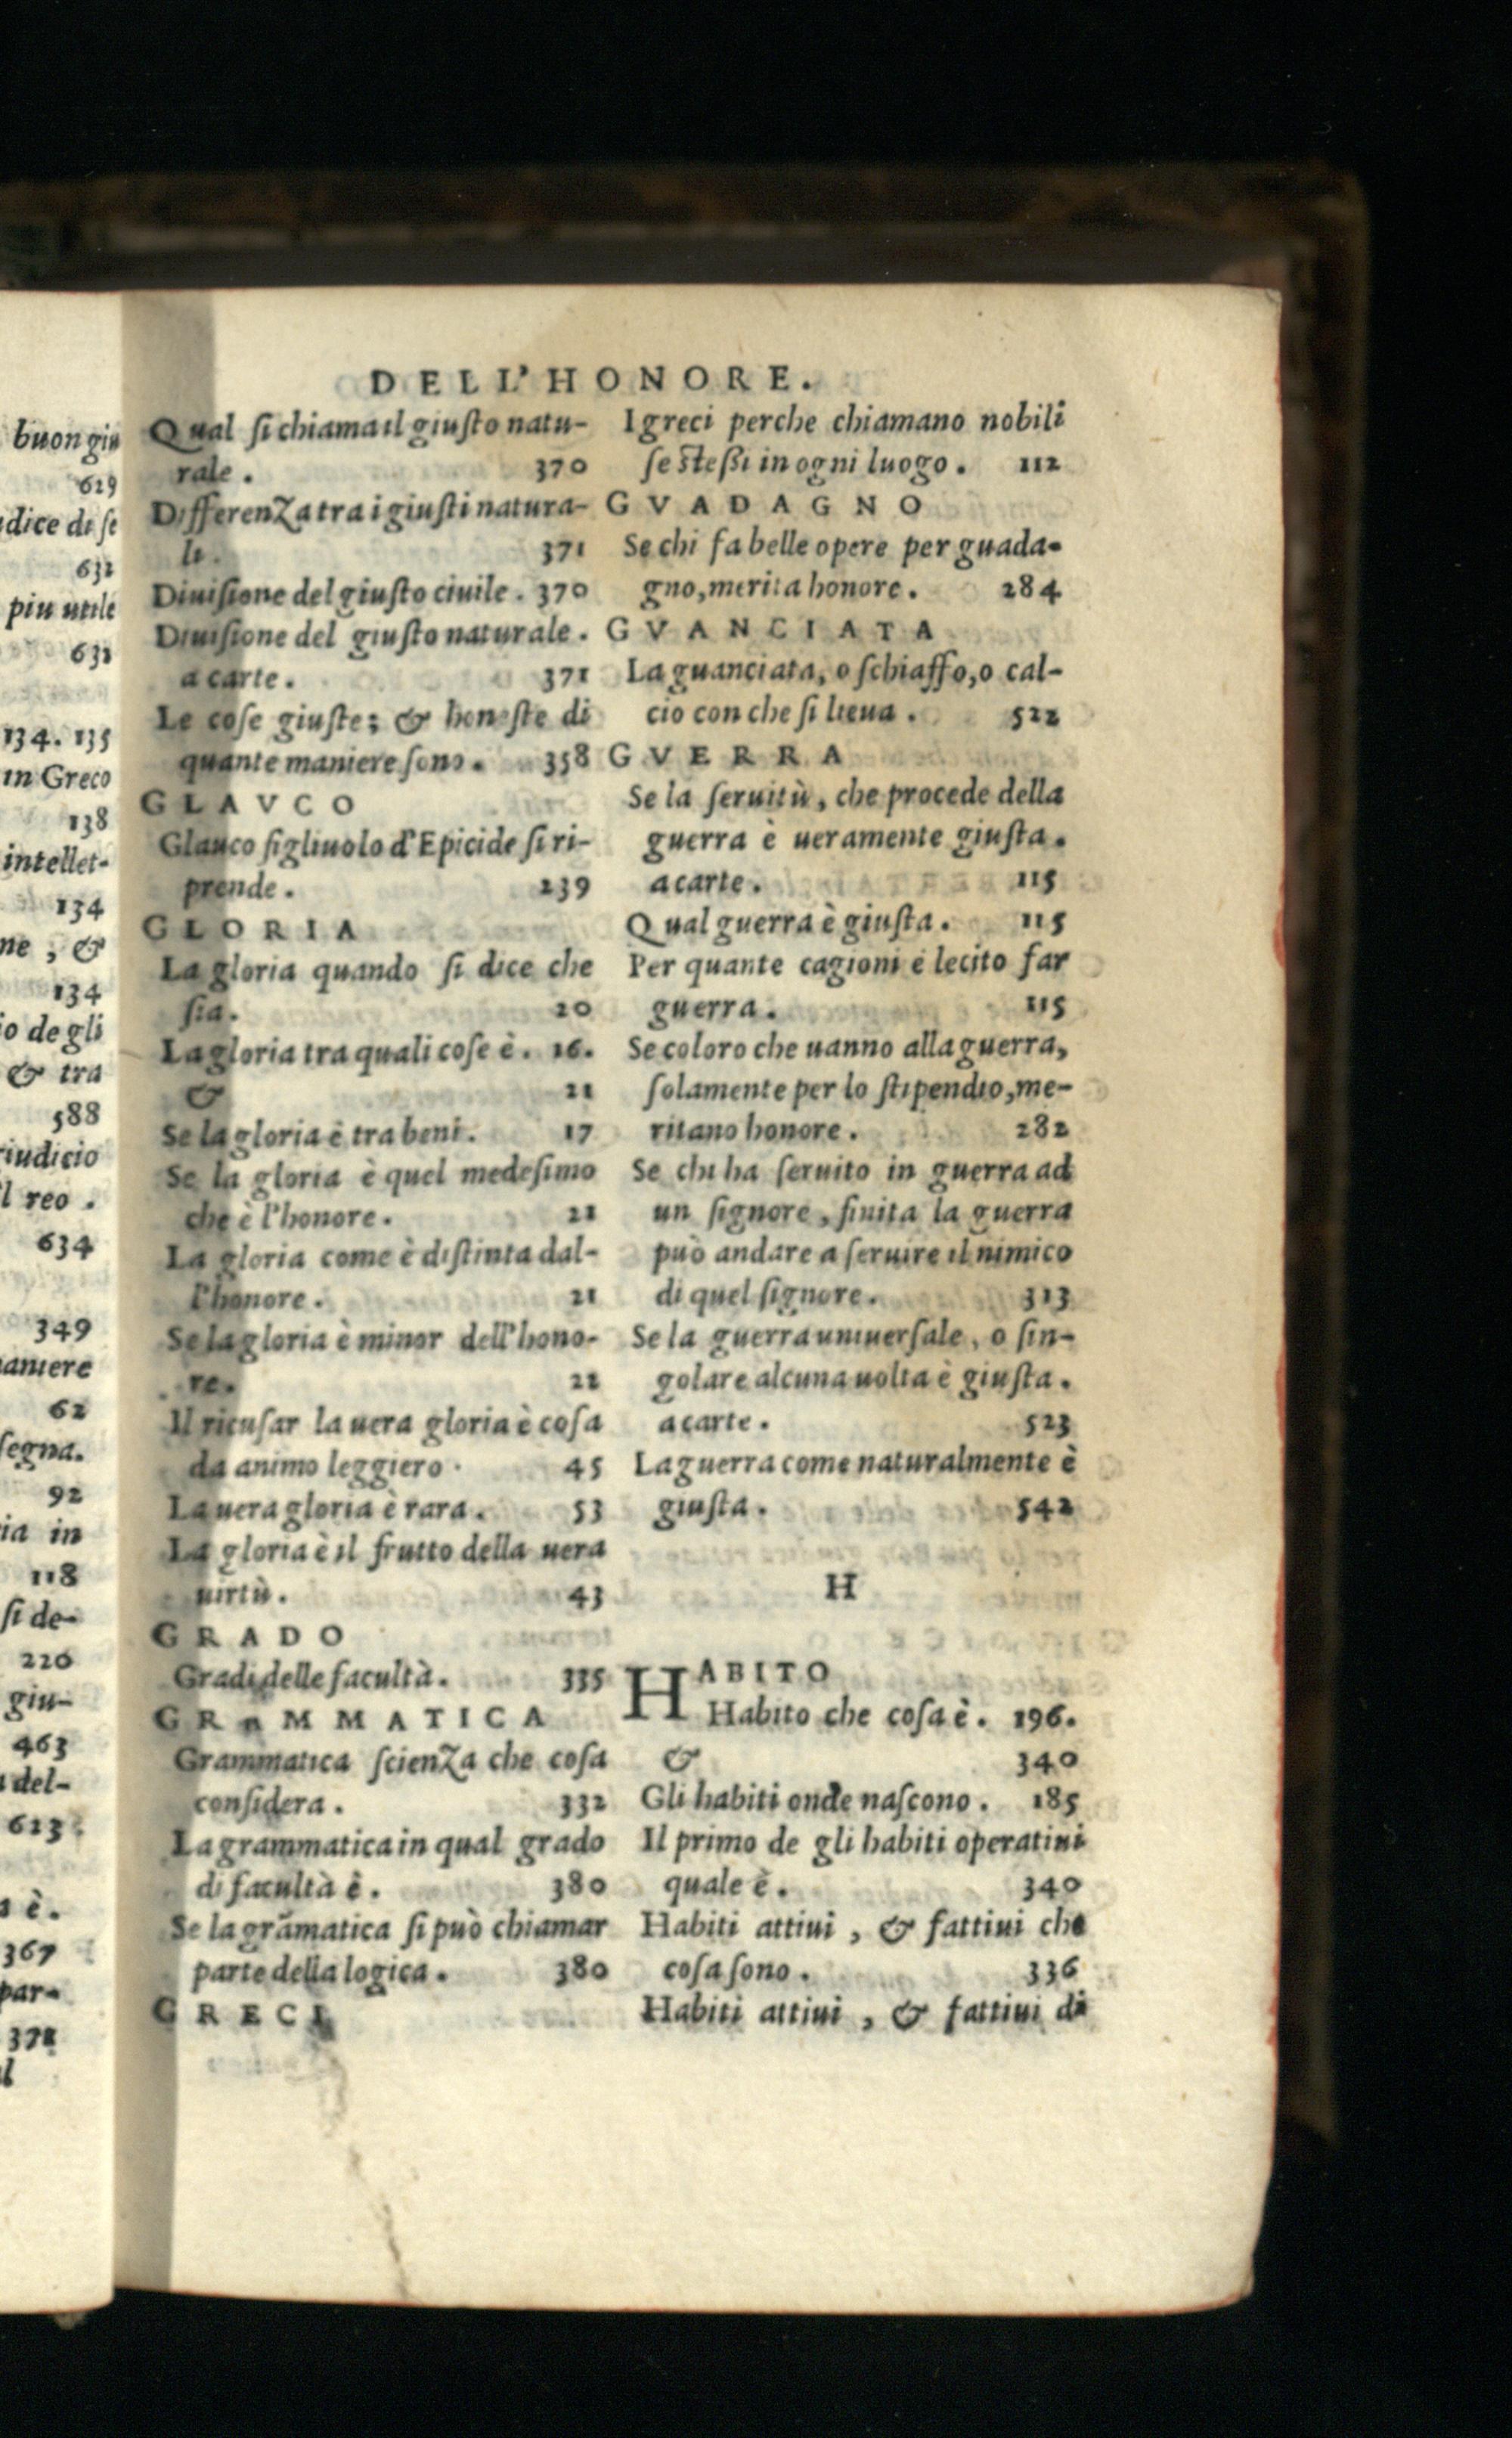 buon giu
629
dice di ſe
632
piu utile
631
134. 135
in Greco
138
intellet-
134
ne, &
134
io de gli
& tra
588
iudicio
l reo.
634
349
aniere
62
ſegna.
92
ia in
118
ſi de-
220
giu-
463
del-
613
è.
367
par-
371
DELL'HONORE.
Qual ſi chiama il giuſto natu-
rale. 370
Differenza tra i giuſti natura-
li. 371
Diuiſione del giuſto ciuile. 370
Diuiſione del giuſto naturale.
a carte. 371
Le coſe giuſte; & honeſte di
quante maniere ſono. 358
GLAVCO
Glauco figliuolo d'Epicide ſi ri-
prende. 239
GLORIA
La gloria quando ſi dice che
ſia. 20
La gloria tra quali coſe è. 16.
& 21
Se la gloria è tra beni. 17
Se la gloria è quel medeſimo
che è l'honore. 21
La gloria come è diſtinta dal-
l'honore. 21
Se la gloria è minor dell'hono-
re. 22
Il ricuſar la uera gloria è coſa
da animo leggiero. 45
La uera gloria è rara. 53
La gloria è il frutto della uera
uirtù. 43
GRADO
Gradi delle facultà. 335
GRAMMATICA
Grammatica ſcienza che coſa
conſidera. 332
La grammatica in qual grado
di facultà è. 380
Se la grãmatica ſi può chiamar
parte della logica. 380
GRECI
I greci perche chiamano nobili
ſe ſteſſi in ogni luogo. 112
GVADAGNO
Se chi fa belle opere per guada-
gno, merita honore. 284
GVANCIATA
La guanciata, o ſchiaffo, o cal-
cio con che ſi lieua. 522
GVERRA
Se la ſeruitù, che procede della
guerra è ueramente giuſta.
a carte. 115
Qual guerra è giuſta. 115
Per quante cagioni è lecito far
guerra. 115
Se coloro che uanno alla guerra,
ſolamente per lo ſtipendio, me-
ritano honore. 282
Se chi ha ſeruito in guerra ad
un ſignore, finita la guerra
può andare a ſeruire il nimico
di quel ſignore. 313
Se la guerra uniuerſale, o ſin-
golare alcuna uolta è giuſta.
a carte. 523
La guerra come naturalmente è
giuſta. 542
H
HABITO
Habito che coſa è. 196.
& 340
Gli habiti onde naſcono. 185
Il primo de gli habiti operatiui
quale è. 340
Habiti attiui, & fattiui che
coſa ſono. 336
Habiti attiui, & fattiui di